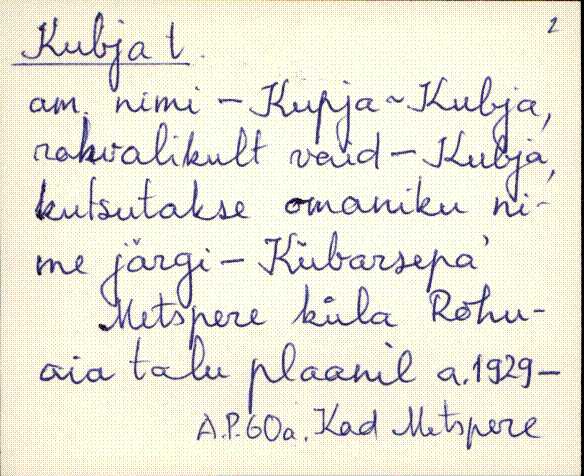 2
Kubja t.
am. nimi – Kupja ~ Kubja,
rahvalikult vaid – Kubja,
kutsutakse omaniku ni-
me järgi – Kübarsepa'
Metspere küla Rõhu-
aia talu plaanil a. 1929 –
A.P. 60a. Kad Metspere